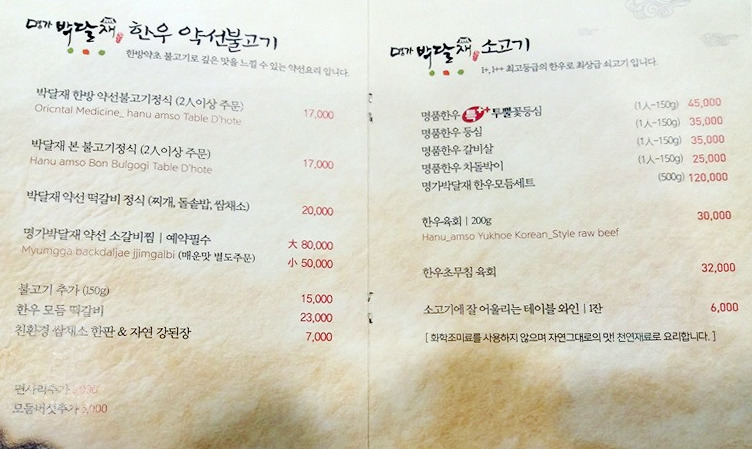 명가 박달재 한우 약선불고기
한방약초 불고기로 깊은 맛을 느낄 수 있는 약선요리 입니다.
박달재 한방 약선불고기정식 (2人이상 주문)
Oricntal Medicine_ hanu amso Table D'hote 17,000
박달재 본 불고기정식 (2人이상 주문)
Hanu amso Bon Bulgogi Table D'hote 17,000
박달재 약선 떡갈비 정식 (찌개, 돌솥밥, 쌈채소) 20,000
명가박달재 약선 소갈비찜 | 예약필수 大 80,000
Myumgga backdaljae jjimgalbi (매운맛 별도주문) 小 50,000
불고기 추가 (150g) 15,000
한우 모듬 떡갈비 23,000
친환경 쌈채소 한판 & 자연 강된장 7,000
면사리추가
모듬버섯추가
명가 박달재 소고기
1+, 1++ 최고등급의 한우로 최상급 쇠고기 입니다.
명품한우 특++ 투뿔꽃등심 (1人-150g) 45,000
명품한우 등심 (1人-150g) 35,000
명품한우 갈비살 (1人-150g) 35,000
명품한우 차돌박이 (1人-150g) 25,000
명가박달재 한우모듬세트 (500g) 120,000
한우육회 | 200g 30,000
Hanu_amso Yukhoe Korean_Style raw beef
한우초무침 육회 32,000
소고기에 잘 어울리는 테이블 와인 | 1잔 6,000
[ 화학조미료를 사용하지 않으며 자연그대로의 맛! 천연재료로 요리합니다. ]